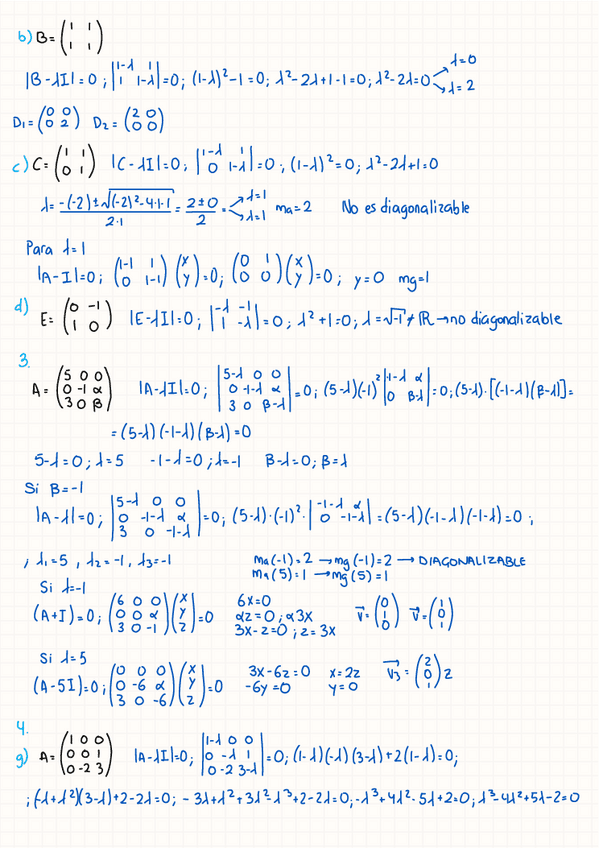 b) B = ( 1 1 ; 1 1 )
|B-λI|=0 ; |1-λ 1 ; 1 1-λ|=0; (1-λ)²-1=0; λ²-2λ+1-1=0; λ²-2λ=0 → λ=0 → λ=2
D₁=(0 0 ; 0 2) D₂=(2 0 ; 0 0)
c) C=(1 1 ; 0 1) |C-λI|=0; |1-λ 1 ; 0 1-λ|=0; (1-λ)²=0; λ²-2λ+1=0
λ=(-(-2)±√((-2)²-4·1·1))/(2·1) = (2±0)/2 = → λ=1 → λ=1 ma=2 No es diagonalizable
Para λ=1
|A-I|=0; (1-1 1 ; 0 1-1)(x ; y)=0; (0 1 ; 0 0)(x ; y)=0; y=0 mg=1
d) E=(0 -1 ; 1 0) |E-λI|=0; |-λ -1 ; 1 -λ|=0; λ²+1=0; λ=√-1 ∉ ℝ → no diagonalizable
3.
A=(5 0 0 ; 0 -1 α ; 3 0 β) |A-λI|=0; |5-λ 0 0 ; 0 -1-λ α ; 3 0 β-λ|=0; (5-λ)(-1)²|-1-λ α ; 0 β-λ|=0; (5-λ)·[(-1-λ)(β-λ)]=
=(5-λ)(-1-λ)(β-λ)=0
5-λ=0; λ=5 -1-λ=0; λ=-1 β-λ=0; β=λ
Si β=-1
|A-λ|=0; |5-λ 0 0 ; 0 -1-λ α ; 3 0 -1-λ|=0; (5-λ)·(-1)²·|-1-λ α ; 0 -1-λ|=(5-λ)(-1-λ)(-1-λ)=0 ;
; λ₁=5 , λ₂=-1, λ₃=-1 ma(-1)=2 → mg(-1)=2 → DIAGONALIZABLE
ma(5)=1 → mg(5)=1
Si λ=-1
(A+I)=0; (6 0 0 ; 0 0 α ; 3 0 -1)(x ; y ; z)=0 6x=0 αz=0; α3x 3x-z=0; z=3x v⃗=(0 ; 1 ; 0) v⃗=(1 ; 0 ; 1)
Si λ=5
(A-5I)=0; (0 0 0 ; 0 -6 α ; 3 0 -6)(x ; y ; z)=0 3x-6z=0 x=2z -6y=0 y=0 v⃗₃=(2 ; 0 ; 1)z
4.
g) A=(1 0 0 ; 0 0 1 ; 0 -2 3) |A-λI|=0; |1-λ 0 0 ; 0 -λ 1 ; 0 -2 3-λ|=0; (1-λ)(-λ)(3-λ)+2(1-λ)=0;
; (-λ+λ²)(3-λ)+2-2λ=0; -3λ+λ²+3λ²-λ³+2-2λ=0; -λ³+4λ²-5λ+2=0; λ³-4λ²+5λ-2=0